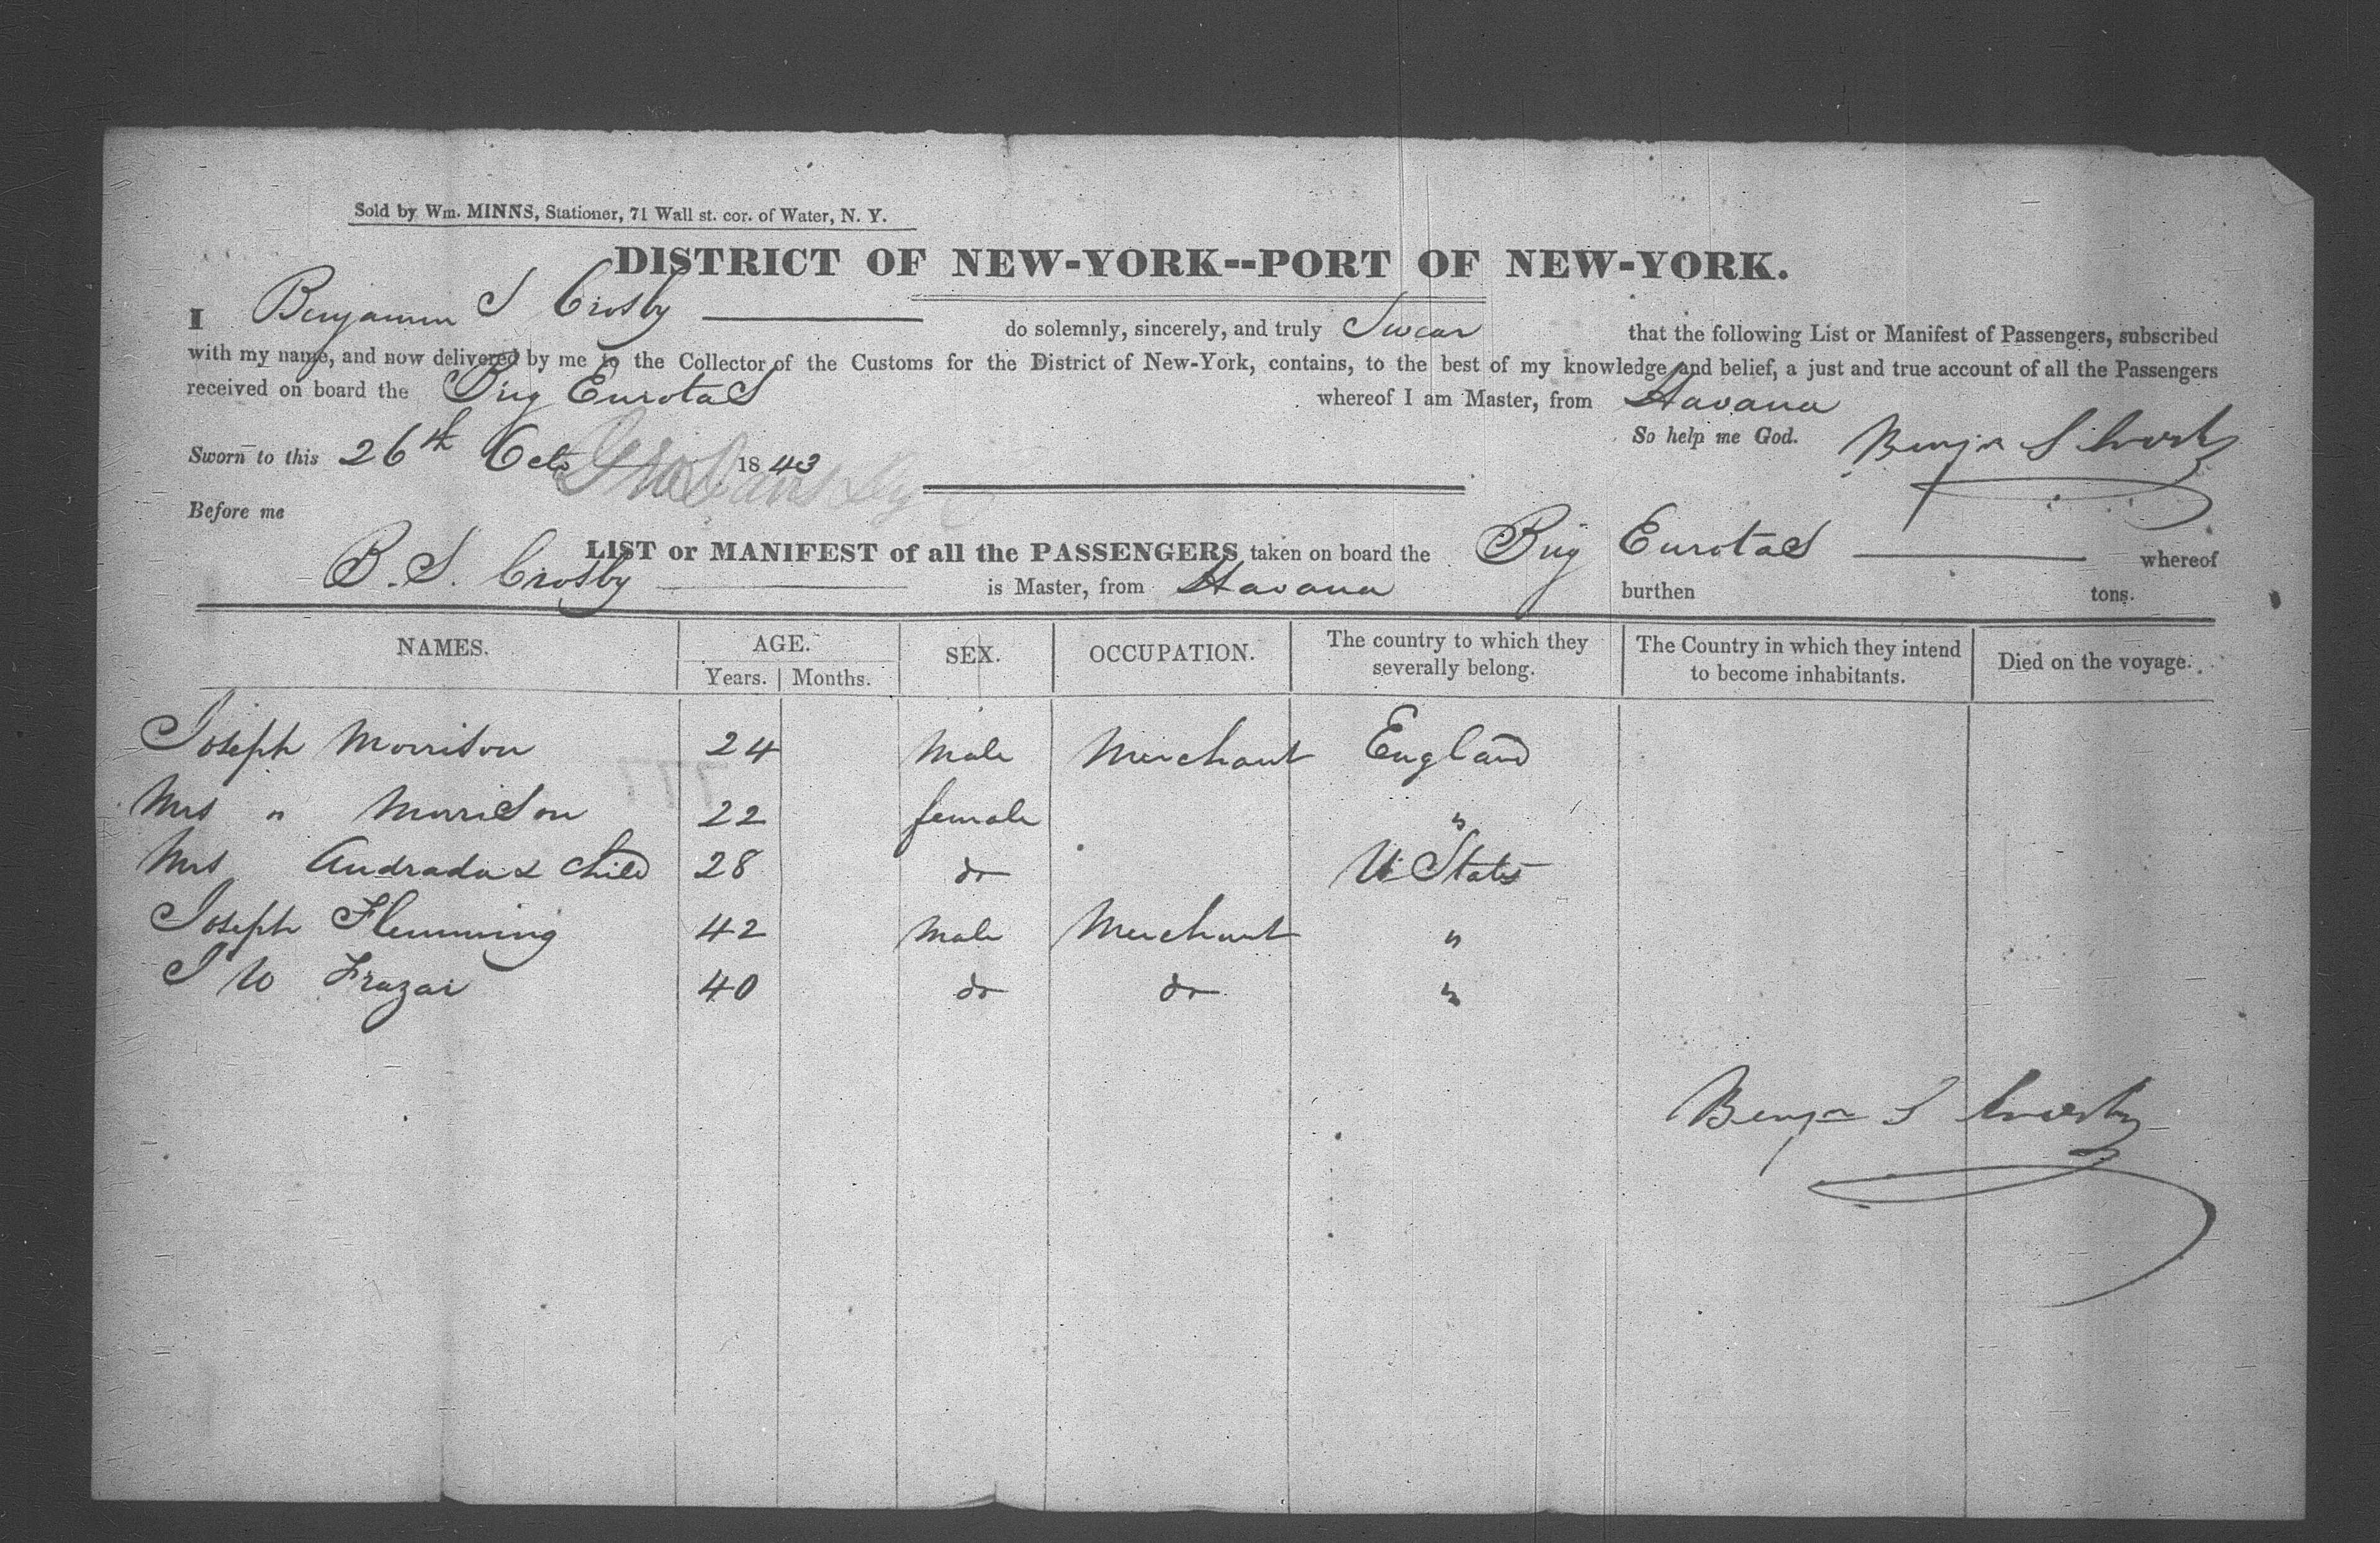 Sold by Wm. MINNS, Stationer, 71 Wall st. cor. of Water, N. Y.
DISTRICT OF NEW-YORK--PORT OF NEW-YORK.
I Benjamin S Crosby do solemnly, sincerely, and truly Swear that the following List or Manifest of Passengers, subscribed
with my name, and now delivered by me to the Collector of the Customs for the District of New-York, contains, to the best of my knowledge and belief, a just and true account of all the Passengers
received on board the Brig Eurotas whereof I am Master, from Havana
So help me God. Benjn S Crosby
Sworn to this 26th Octo 1843
Before me
LIST or MANIFEST of all the PASSENGERS taken on board the Brig Eurotas whereof
B. S. Crosby is Master, from Havana burthen tons.
NAMES. AGE. Years. Months. SEX. OCCUPATION. The country to which they severally belong. The Country in which they intend to become inhabitants. Died on the voyage.
Joseph Morrison 24 Male Merchant England
Mrs " Morrison 22 female "
Mrs Andrada & Child 28 do U States
Joseph Flemming 42 Male Merchant "
J W Frazar 40 do do "
Benjn S Crosby